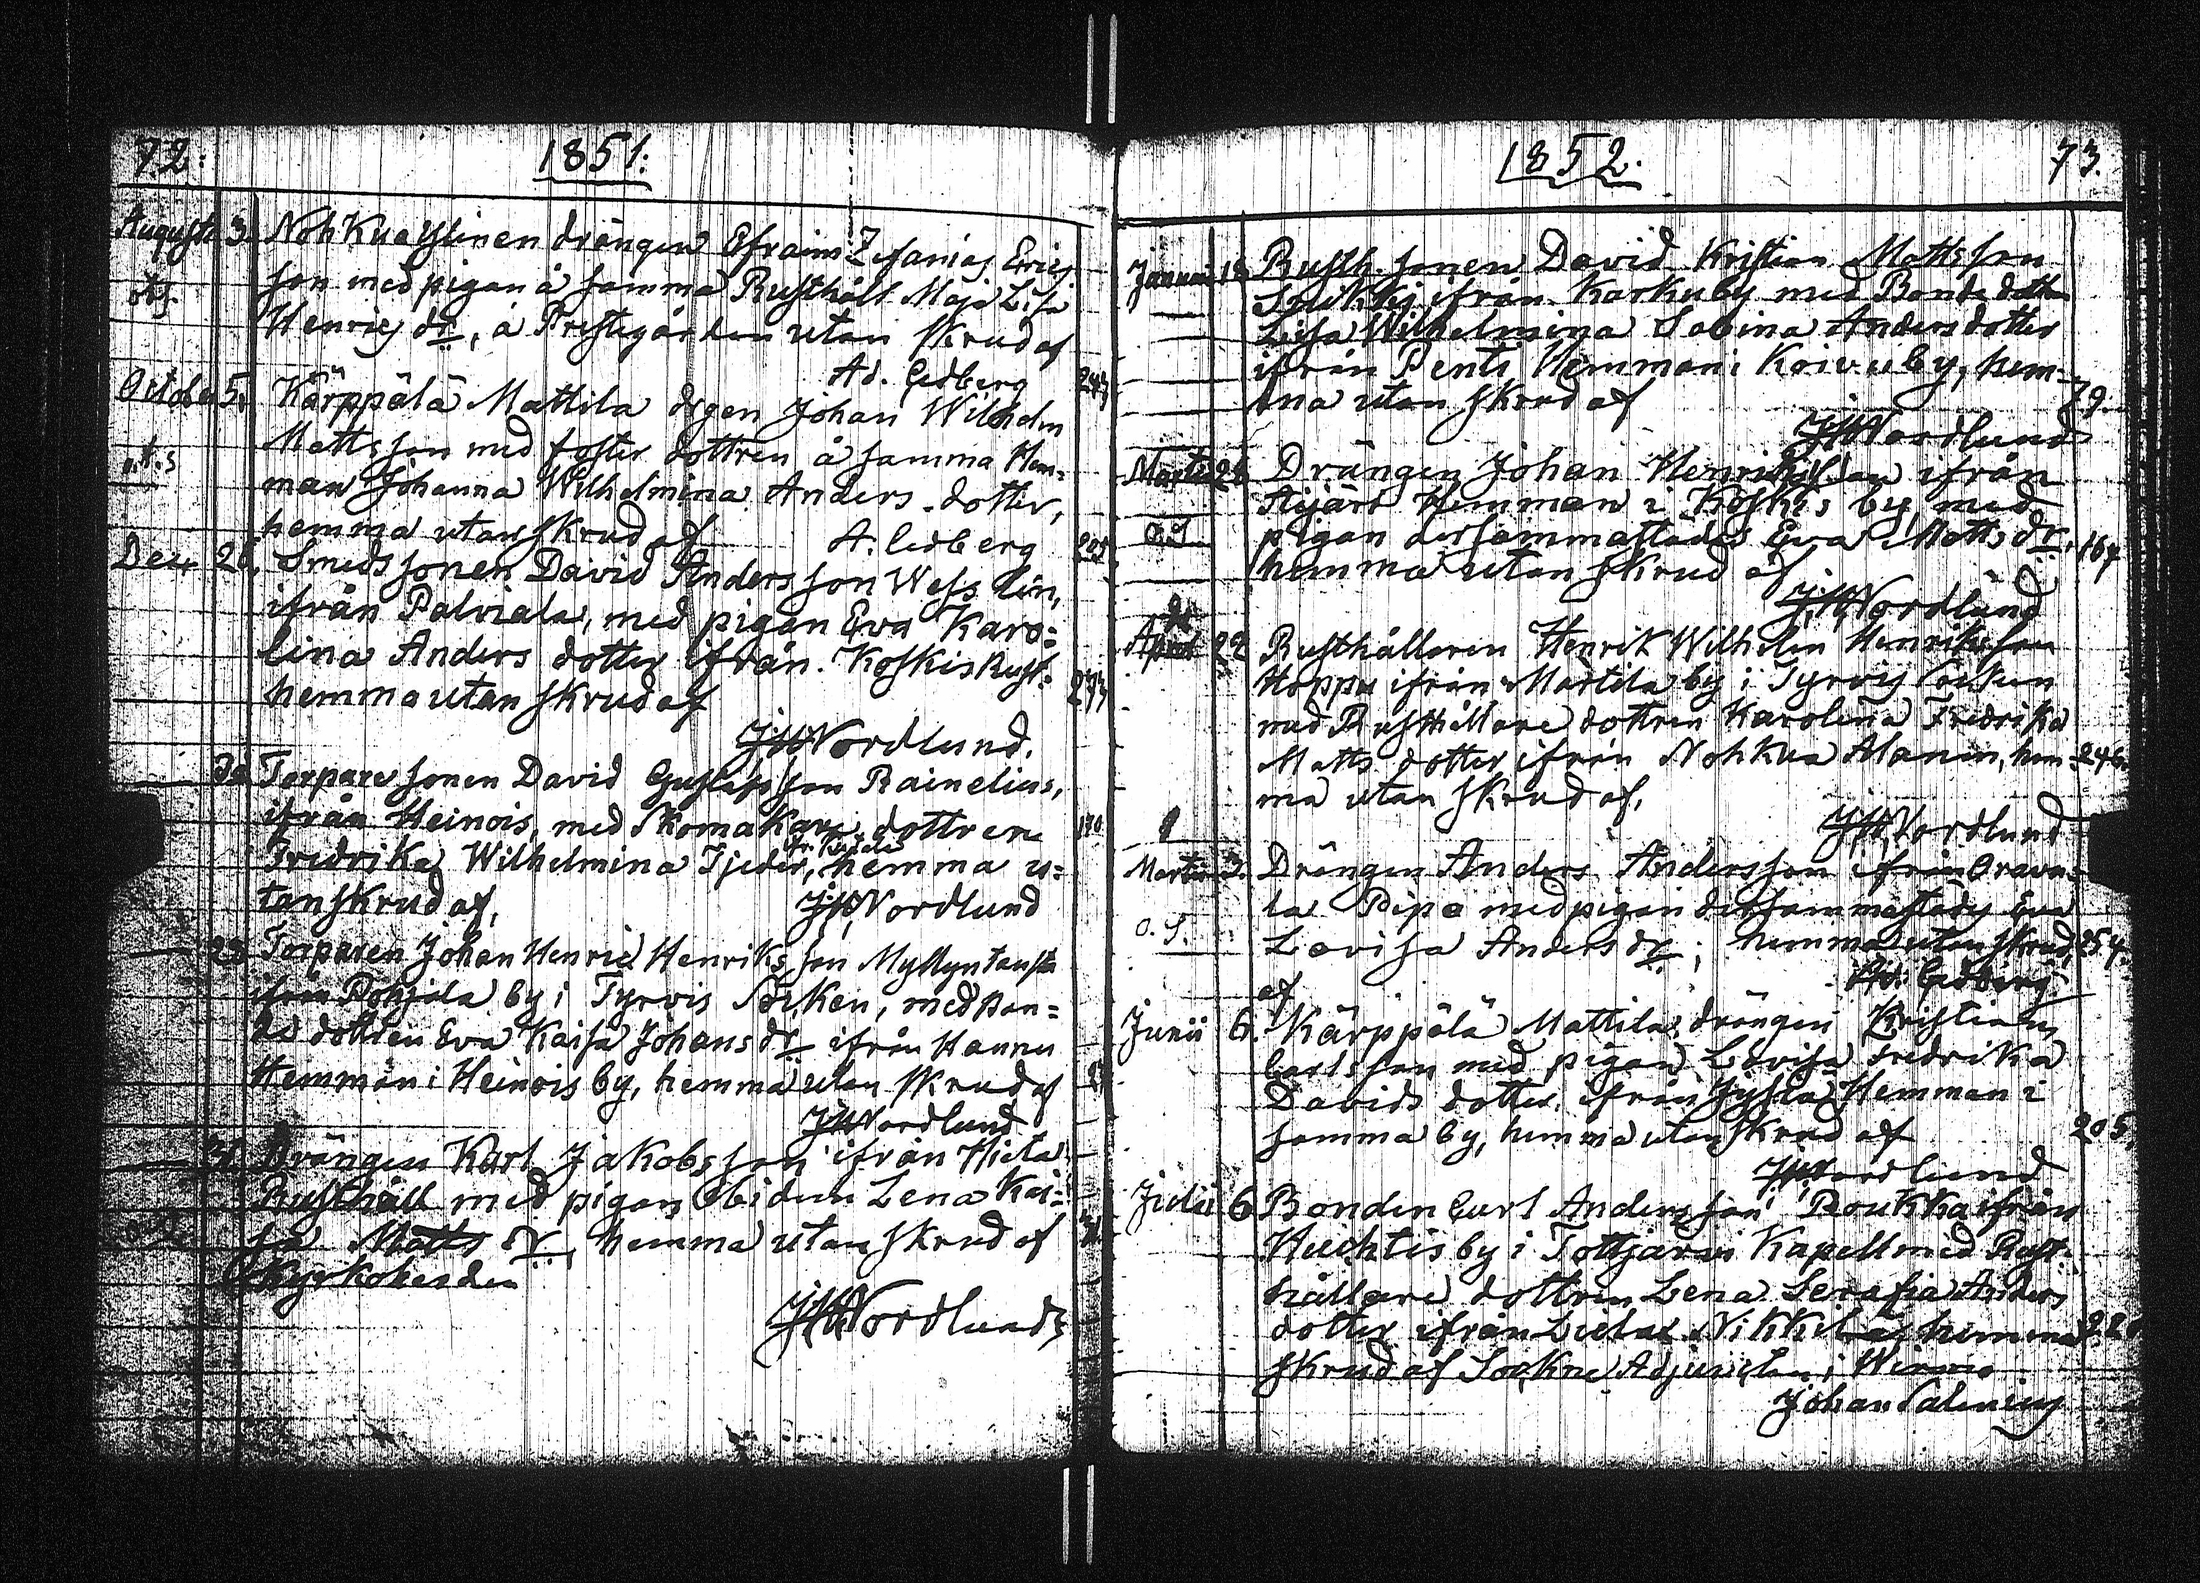 72. 1851.
Augusti 3. Nohkua Ylinen drängen Efraim Zefanias Erics
son med pigan å samma Rusthåll Maja Lisa
Henrics dr, å Prestegården utan skrud af
Ad. Cedberg
October 5. Kärppälä Mattila drgen Johan Wilhelm
Mattsson med foster dottren å samma Hem-
man Johanna Wilhelmina Anders dotter,
hemma utan skrud af A. Cedberg
Smedssonen David Andersson Wesslin,
ifrån Palviala, med pigan Eva Karo=
lina Anders dotter ifrån Koskis Rust:
hemma utan skrud af 277
JW Nordlund.
Torparesonen David Gustafsson Rainelius,
ifrån Heinois, med Skomakare dottren
Fredrika Wilhelmina Tjeder, hemma u=
tan skrud af,
JW Nordlund
28 Torparen Johan Henric Henriksson Myllyntausta
ifrån Pohjala by i Tyrvis Socken, med Bon=
de dottren Eva Kaisa Johans dr ifrån Hannu
Hemman i Heinois by, hemma utan skrud af
JW Nordlund
Drängen Karl Jakobsson ifrån Hieta
Rusthåll med pigan ibidem Lena Kai=
sa Matts dr, hemma utan skrud af
Kyrkoherden
JW Nordlund
1852. 73.
Januari 18 Rusth. sonen David Kristian Mattsson
ifrån Karkuby med Bonde dottren
Lisa Wilhelmina Sabina Anders dotter
ifrån Pentti Hemman i Koivuby, hem-
ma utan skrud af 79.
JW Nordlund
Martii 28 Drängen Johan Henriksson ifrån
Äijärt Hemman i Koskis by, med
pigan dersammastädes Eva Matts dr, 167
hemma utan skrud af
JW Nordlund
April 22 Rusthållaren Henrik Wilhelm Henriksson
Hoppu ifrån Martila by i Tyrvis Socken
med Rusthållare dottren Karolina Fredrika
Matts dotter ifrån Nohkua Alanen, hem= 246.
ma utan skrud af.
JW Nordlund
Martii 3. Drängen Anders Andersson ifrån Orava=
la Pipo med pigan dersammastädes Eva
Lovisa Anders dr; hemma utan skrud, 254.
af Ad. Cedberg
Junii 6. Kärppälä Mattila drängen Kristian
Carlsson med pigan Lovisa Fredrika
Davids dotter ifrån Jyllä Hemman i
samma by, hemma utan skrud af 205.
JW Nordlund
Julii 6 Bonden Carl Andersson Roukka ifrån
Huchtis by i Tottjärvi Kapell med Rust-
hållare dottren Lena Serafia Anders
dotter ifrån Luelax Nikkilä, hemma
skrud af Sockne Adjuncten i Wesimo
Johan Salenius